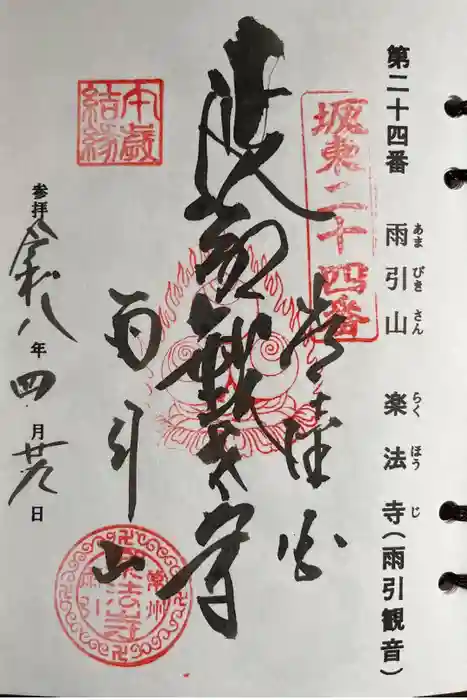 第二十四番 雨引山 楽法寺(雨引観音)
あま びき さん らく ほう じ
坂東二十四番
常陸国
雨引山
午歳結縁
常州
雨引
楽法寺
参拝 令和八年四月 日